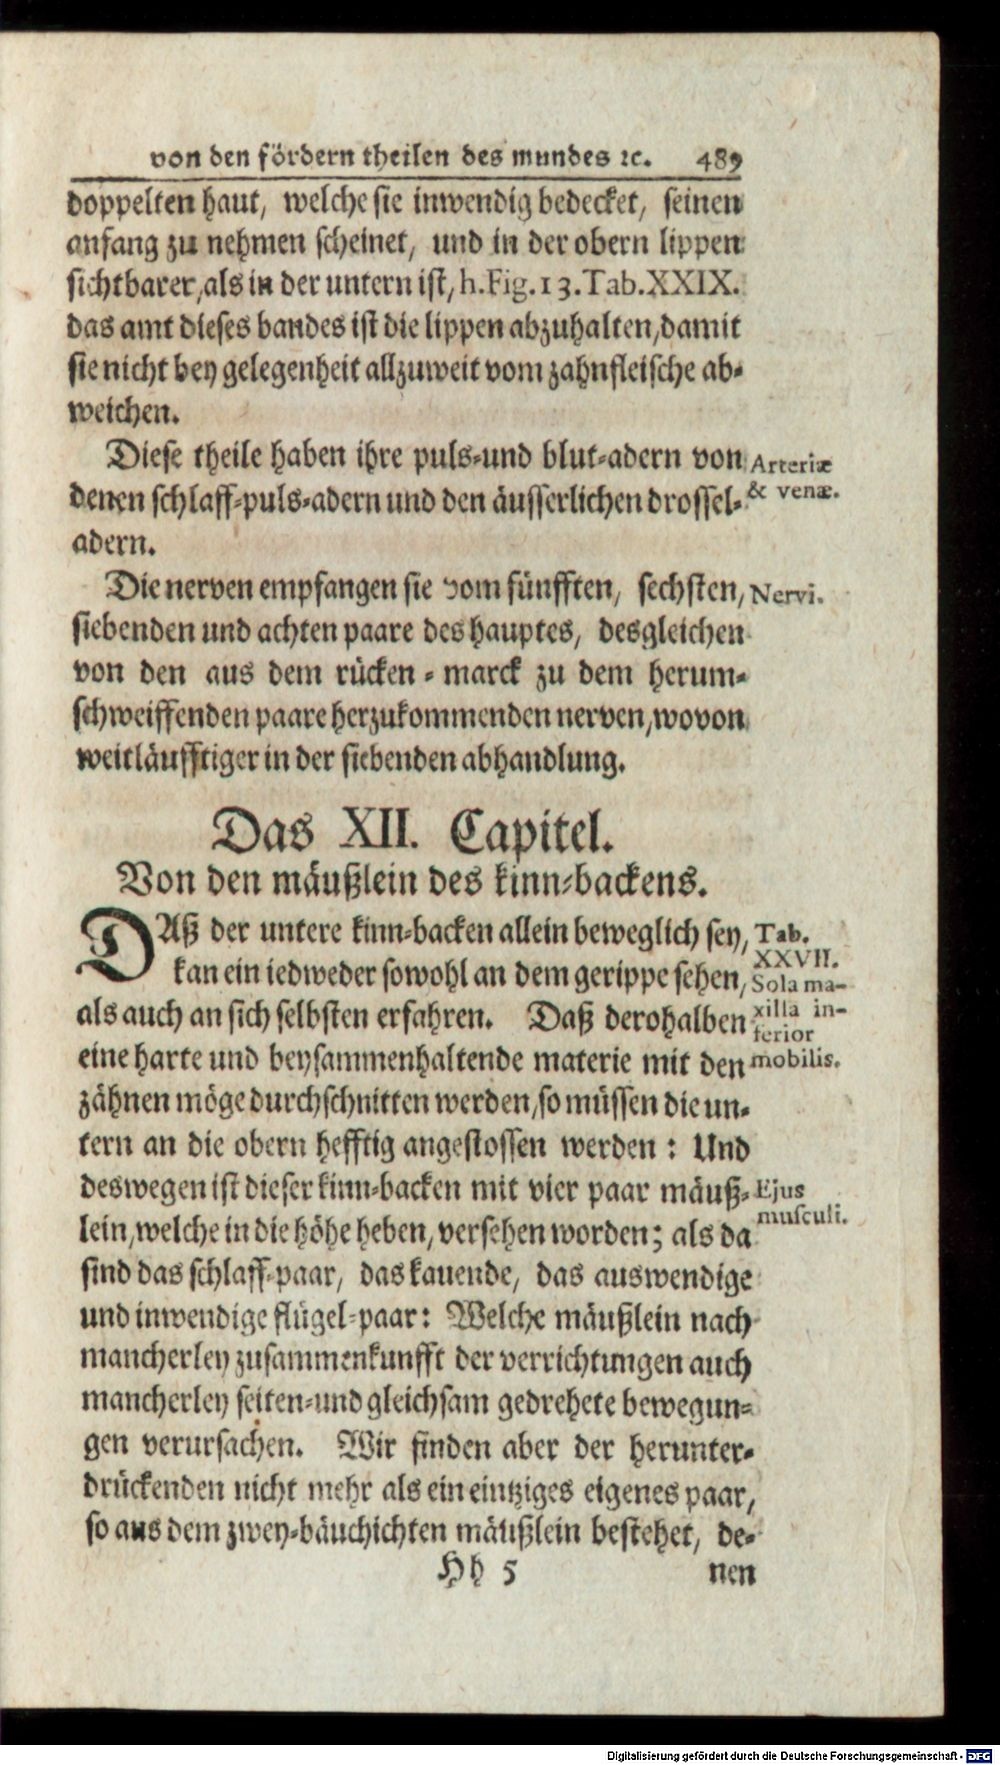 von den fördern theilen des mundes ꝛc. 489
doppelten haut, welche sie inwendig bedecket, seinen
anfang zu nehmen scheinet, und in der obern lippen
sichtbarer, als in der untern ist, h. Fig. 13. Tab. XXIX.
das amt dieses bandes ist die lippen abzuhalten, damit
sie nicht bey gelegenheit allzuweit vom zahnfleische ab-
weichen.
Diese theile haben ihre puls-und blut-adern von
Arteriæ
denen schlaff-puls-adern und den äusserlichen drossel-
& venæ.
adern.
Die nerven empfangen sie vom fünfften, sechsten,
Nervi.
siebenden und achten paare des hauptes, desgleichen
von den aus dem rücken-marck zu dem herum-
schweiffenden paare herzukommenden nerven, wovon
weitläufftiger in der siebenden abhandlung.
Das XII. Capitel.
Von den mäußlein des kinn-backens.
DAß der untere kinn-backen allein beweglich sey,
Tab.
XXVII.
kan ein iedweder sowohl an dem gerippe sehen,
Sola ma-
als auch an sich selbsten erfahren. Daß derohalben
xilla in-
ferior
eine harte und beysammenhaltende materie mit den
mobilis.
zähnen möge durchschnitten werden, so müssen die un-
tern an die obern hefftig angestossen werden: Und
deswegen ist dieser kinn-backen mit vier paar mäuß-
Ejus
lein, welche in die höhe heben, versehen worden; als da
musculi.
sind das schlaff-paar, das kauende, das auswendige
und inwendige flügel-paar: Welche mäußlein nach
mancherley zusammenkunfft der verrichtungen auch
mancherley seiten-und gleichsam gedrehete bewegun-
gen verursachen. Wir finden aber der herunter-
drückenden nicht mehr als ein eintziges eigenes paar,
so aus dem zwey-bäuchichten mäußlein bestehet, de-
Hh 5 nen
Digitalisierung gefördert durch die Deutsche Forschungsgemeinschaft - DFG